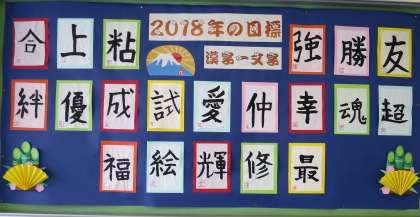 2018年の目標
漢字一文字
合 上 粘 強 勝 友
絆 優 成 試 愛 仲 幸 魂 超
福 絵 輝 修 最